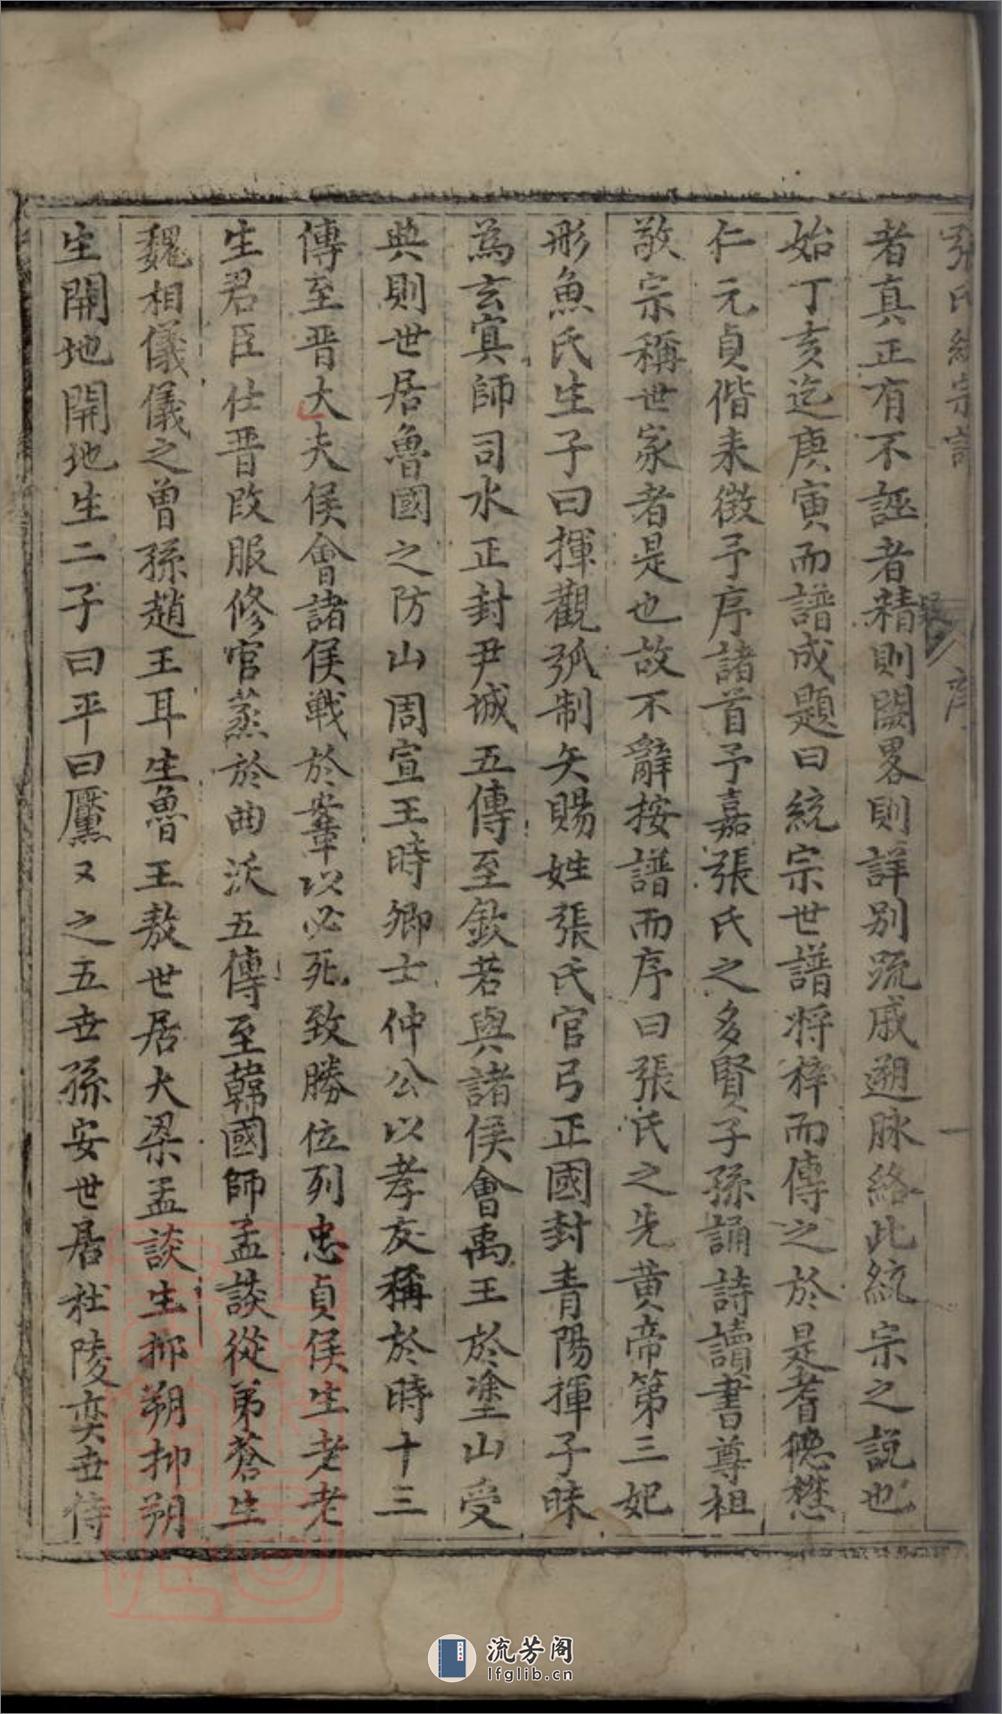 張氏統宗譜 序 一
者真正有不誣者精則闕畧則詳別疏戚遡脉絡此統宗之說也
始丁亥迄庚寅而譜成題曰統宗世譜將梓而傳之於是耆德懋
仁元貞偕来徵予序諸首予嘉張氏之多賢子孫誦詩讀書尊祖
敬宗稱世家者是也故不辭按譜而序曰張氏之先黄帝第三妃
彤魚氏生子曰揮觀弧制矢賜姓張氏官弓正國封青陽揮子昧
為玄寞師司水正封尹城五傳至欽若與諸侯會禹王於塗山受
典則世居魯國之防山周宣王時卿士仲公以孝友稱於時十三
傳至晋大夫侯會諸侯戦於鞌以必死致勝位列忠貞侯生老老
生君臣仕晋改服修官蒸於曲沃五傳至韓國師孟談從弟蒼生
魏相儀儀之曽孫趙王耳生魯王敖世居大梁孟談生抑朔抑朔
生開地開地生二子曰平曰㷳又之五世孫安世居杜陵奕世侍
流芳阁
lfglib.cn